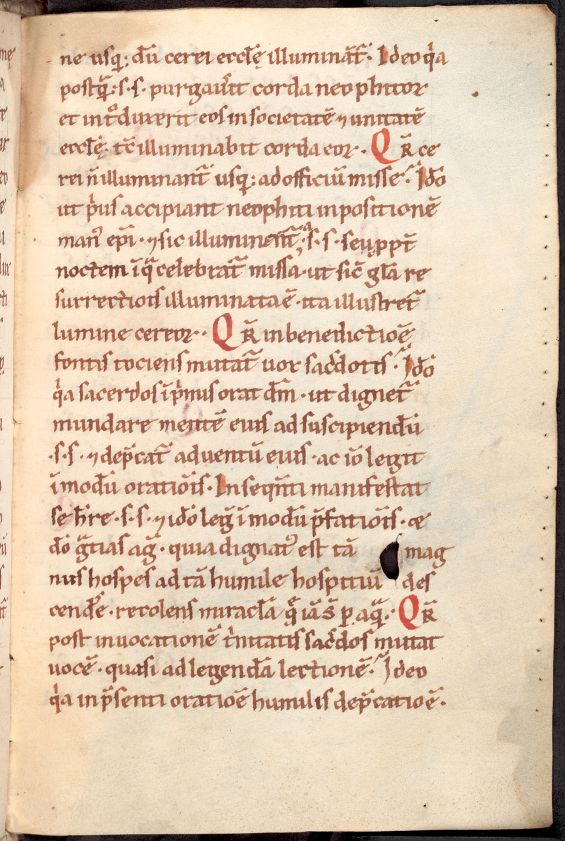 ne usq; dū cerei eccle̅ illuminat̅. Ideo q̇a
postq̄. s. s. purgauit̅ corda neophitoꝝ
et int̄duxerit eos in societatē ⁊ unitatē
eccle̅. tc̅ illuminabit corda eoꝝ. Qr̅ ce
rei n̅ illuminant̅ usq; ad officiū misse. Ido̅
ut ṗus accipiant neophiti inpositionē
man᷒ ep̅i. ⁊ sic illuminent̅ a s. s. seu ppt̅
noctem i̅ q̄ celebrat̅ missa. ut sic̅ gl̅a re
surrectiois̅ illuminata ē. ita illustret̅
lumine cereoꝝ. Qr̅ in benedictioē
fontis tociens mutat̅ uox sac̅dotis. Ido̅
q̇a sacerdos i̅ ṗmis orat dm̅. ut dignet̅
mundare mentē eius ad suscipiendū
. s. s. ⁊ dep̅cat̅ aduentū eius. ac io̅ legit
i̅ modū oratiois̅. In seqn̅ti manifestat
se h̅re. s. s. ⁊ ido̅ leg̅ i̅ modū p̅fatiois̅. oe
do̅ gr̅tias ag̅. quia dignat᷒ est tā mag
nus hospes ad tā humile hospitiū des
cende̅. recolens miracl̅a
post inuocationē ṫnitatis sac̅dos mutat
uocē. quasi ad legendā lectionē. Ideo
q̇a in p̅senti oratioē humilis dep̅catioē.